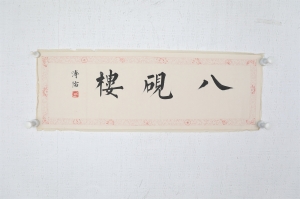 八硯樓
溥佑